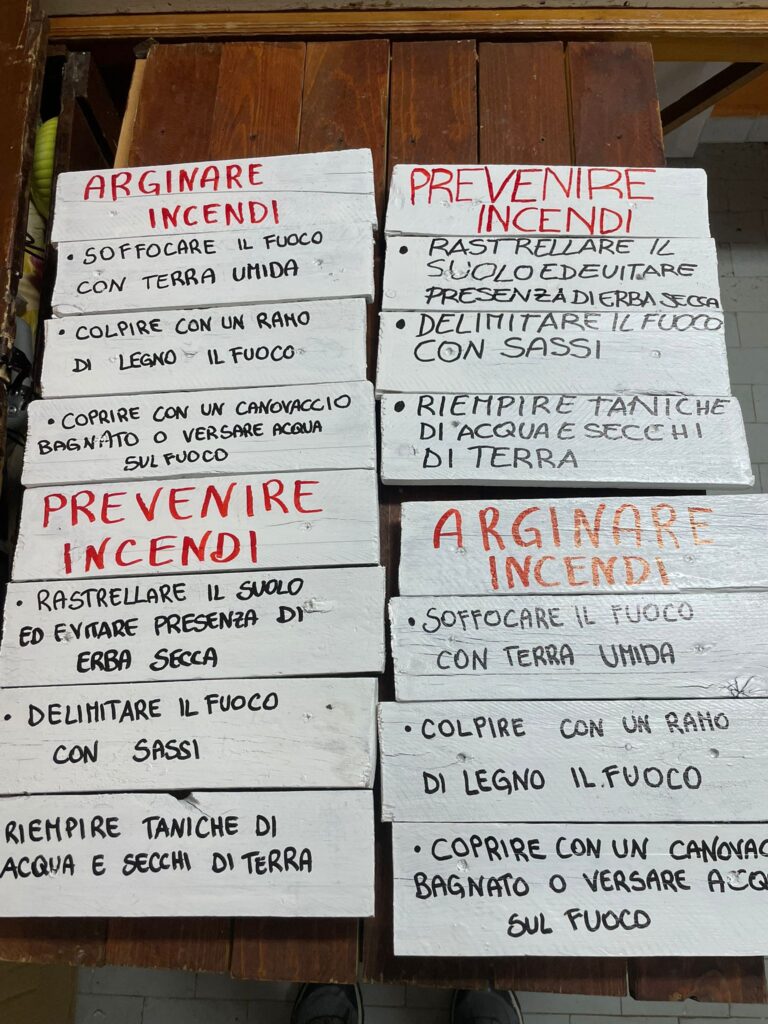 ARGINARE
INCENDI
• SOFFOCARE IL FUOCO
CON TERRA UMIDA
• COLPIRE CON UN RAMO
DI LEGNO IL FUOCO
• COPRIRE CON UN CANOVACCIO
BAGNATO O VERSARE ACQUA
SUL FUOCO
PREVENIRE
INCENDI
• RASTRELLARE IL SUOLO
ED EVITARE PRESENZA DI
ERBA SECCA
• DELIMITARE IL FUOCO
CON SASSI
RIEMPIRE TANICHE DI
ACQUA E SECCHI DI TERRA
PREVENIRE
INCENDI
• RASTRELLARE IL
SUOLO ED EVITARE
PRESENZA DI ERBA SECCA
• DELIMITARE IL FUOCO
CON SASSI
• RIEMPIRE TANICHE
DI ACQUA E SECCHI
DI TERRA
ARGINARE
INCENDI
• SOFFOCARE IL FUOCO
CON TERRA UMIDA
• COLPIRE CON UN RAMO
DI LEGNO IL FUOCO
• COPRIRE CON UN CANOVAC
BAGNATO O VERSARE ACQ
SUL FUOCO